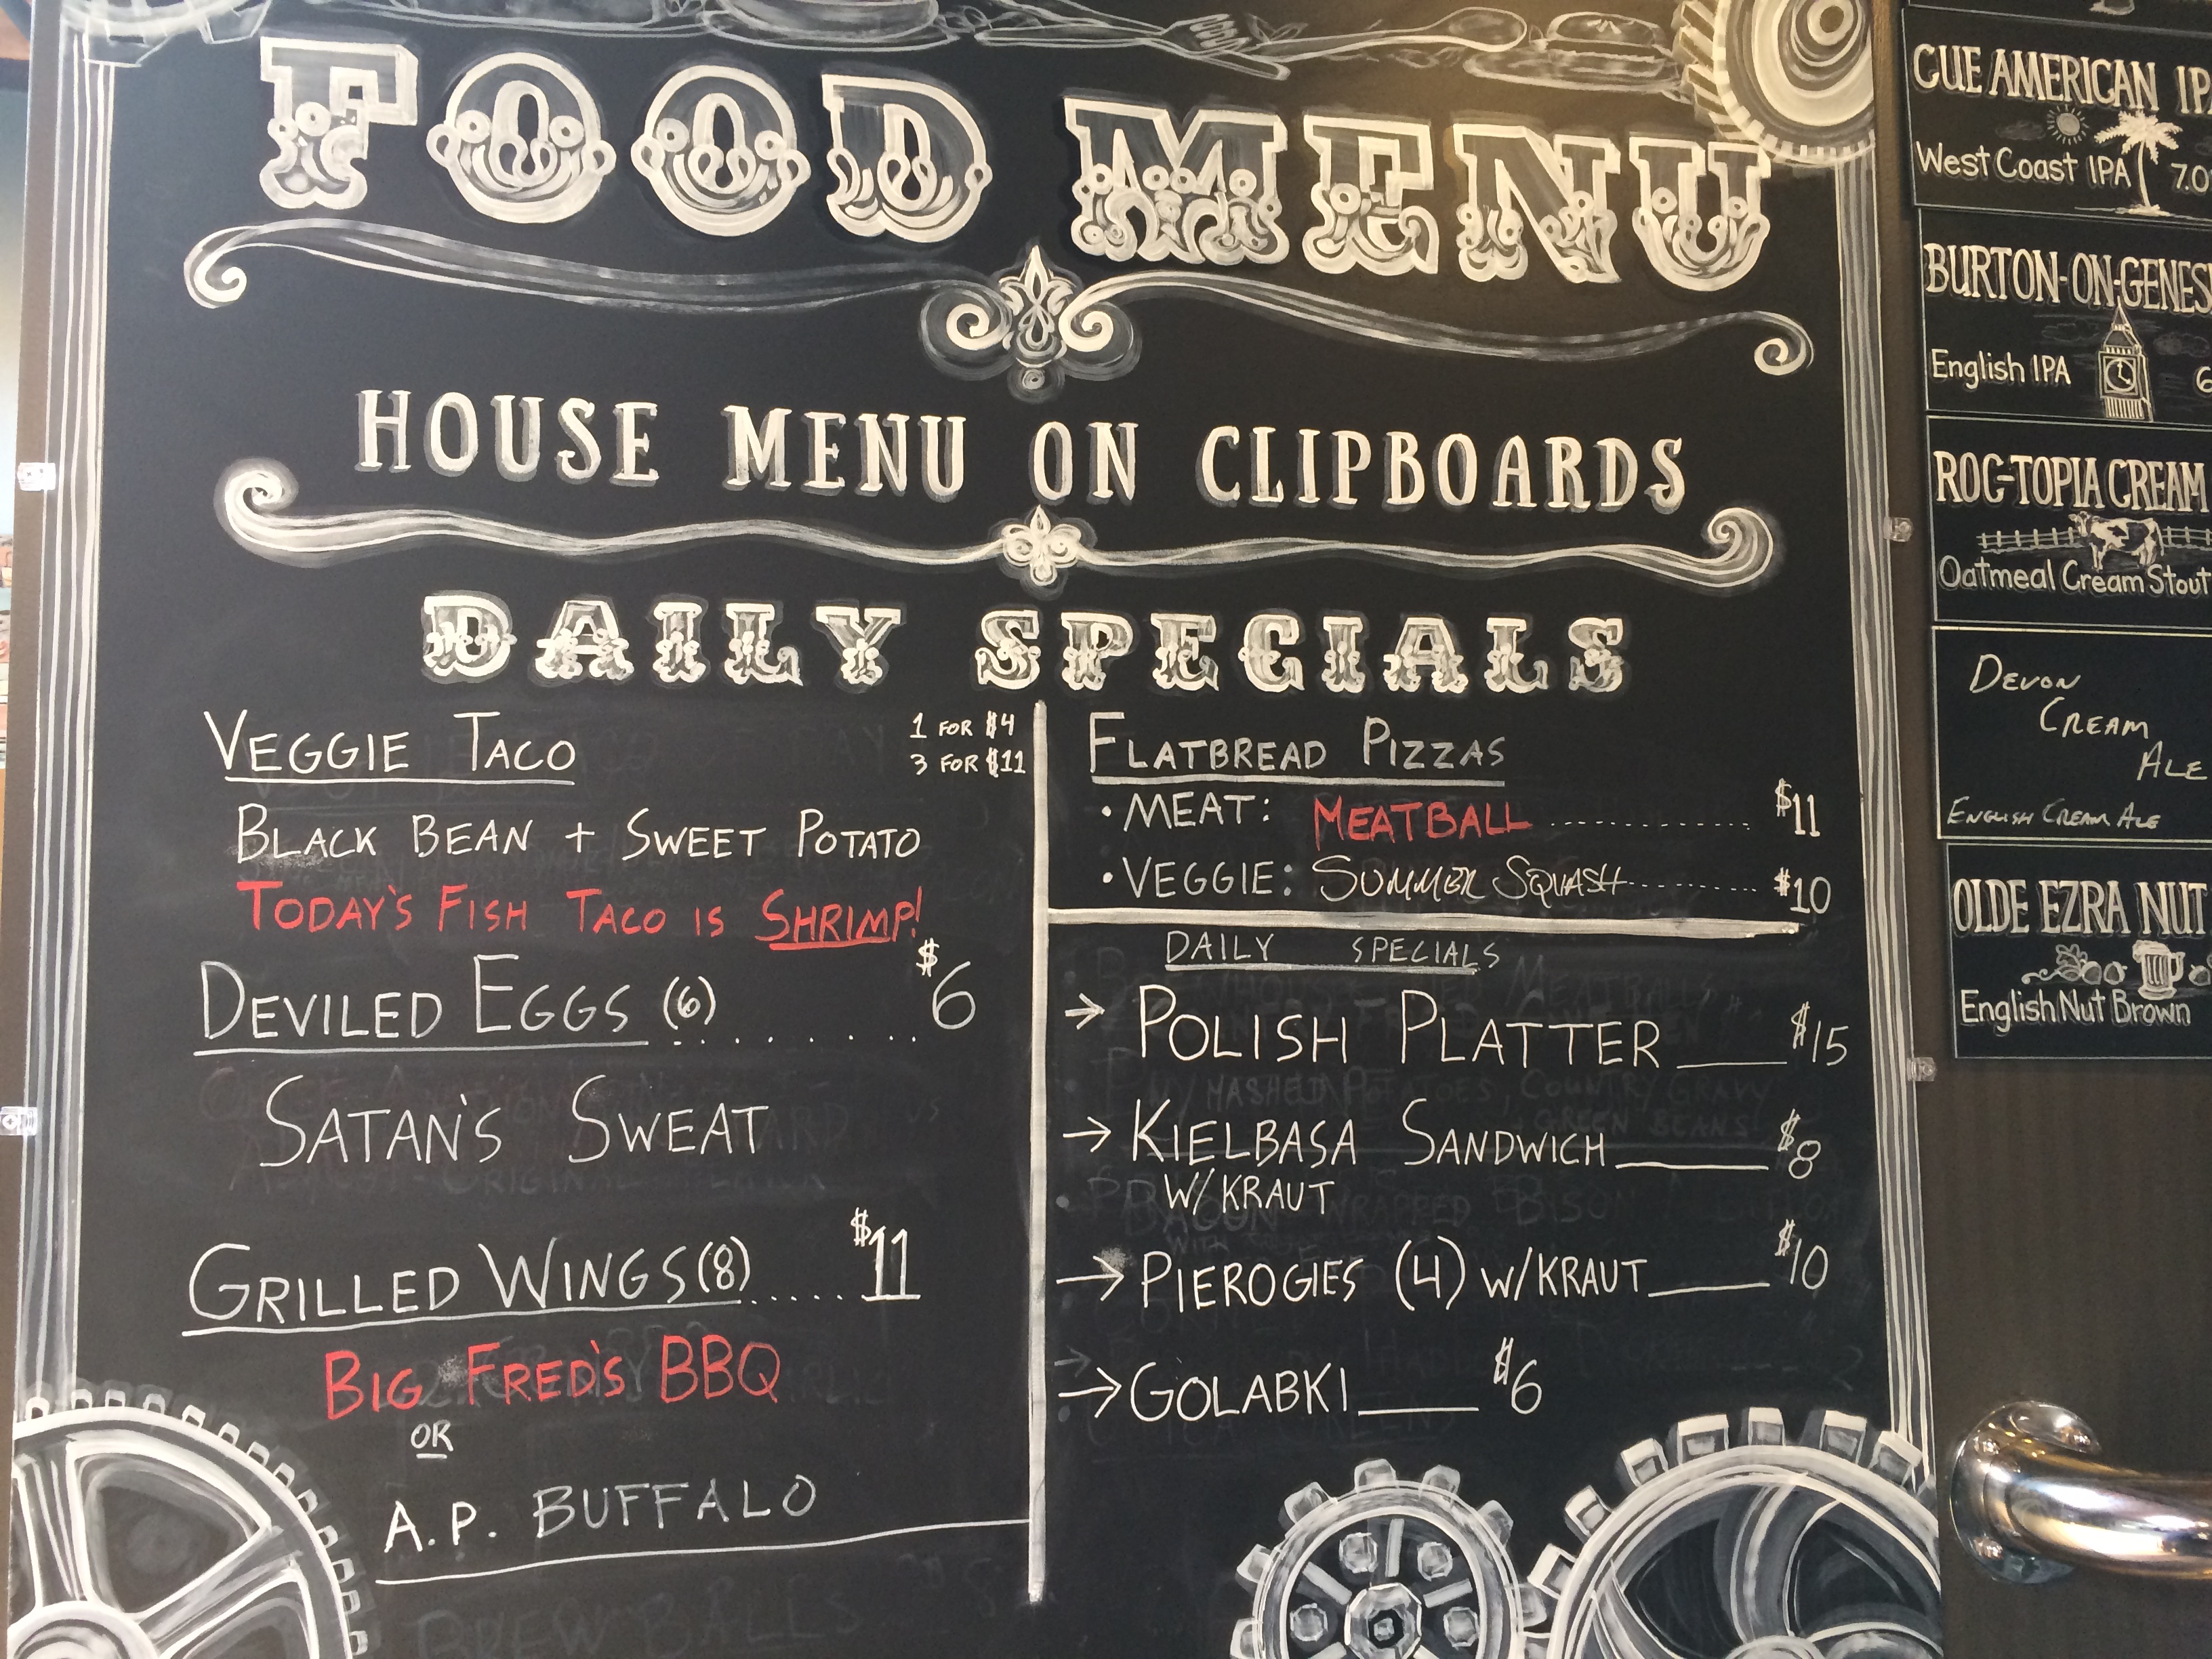 FOOD MENU
HOUSE MENU ON CLIPBOARDS
DAILY SPECIALS
VEGGIE TACO 1 FOR $4
3 FOR $11
BLACK BEAN + SWEET POTATO
TODAY'S FISH TACO IS SHRIMP!
DEVILED EGGS (6) ........ $6
SATAN'S SWEAT
GRILLED WINGS (8) ..... $11
BIG FRED'S BBQ
OR
A.P. BUFFALO
FLATBREAD PIZZAS
• MEAT: MEATBALL .............. $11
• VEGGIE: SUMMER SQUASH .......... $10
DAILY SPECIALS
→ POLISH PLATTER ___ $15
→ KIELBASA SANDWICH ___ $8
W/ KRAUT
→ PIEROGIES (4) W/KRAUT ___ $10
→ GOLABKI ___ $6
CUE AMERICAN IP
West Coast IPA 7.0
BURTON-ON-GENES
English IPA 6
ROC-TOPIA CREAM
Oatmeal Cream Stout
DEVON
CREAM
ALE
ENGLISH CREAM ALE
OLDE EZRA NUT
English Nut Brown